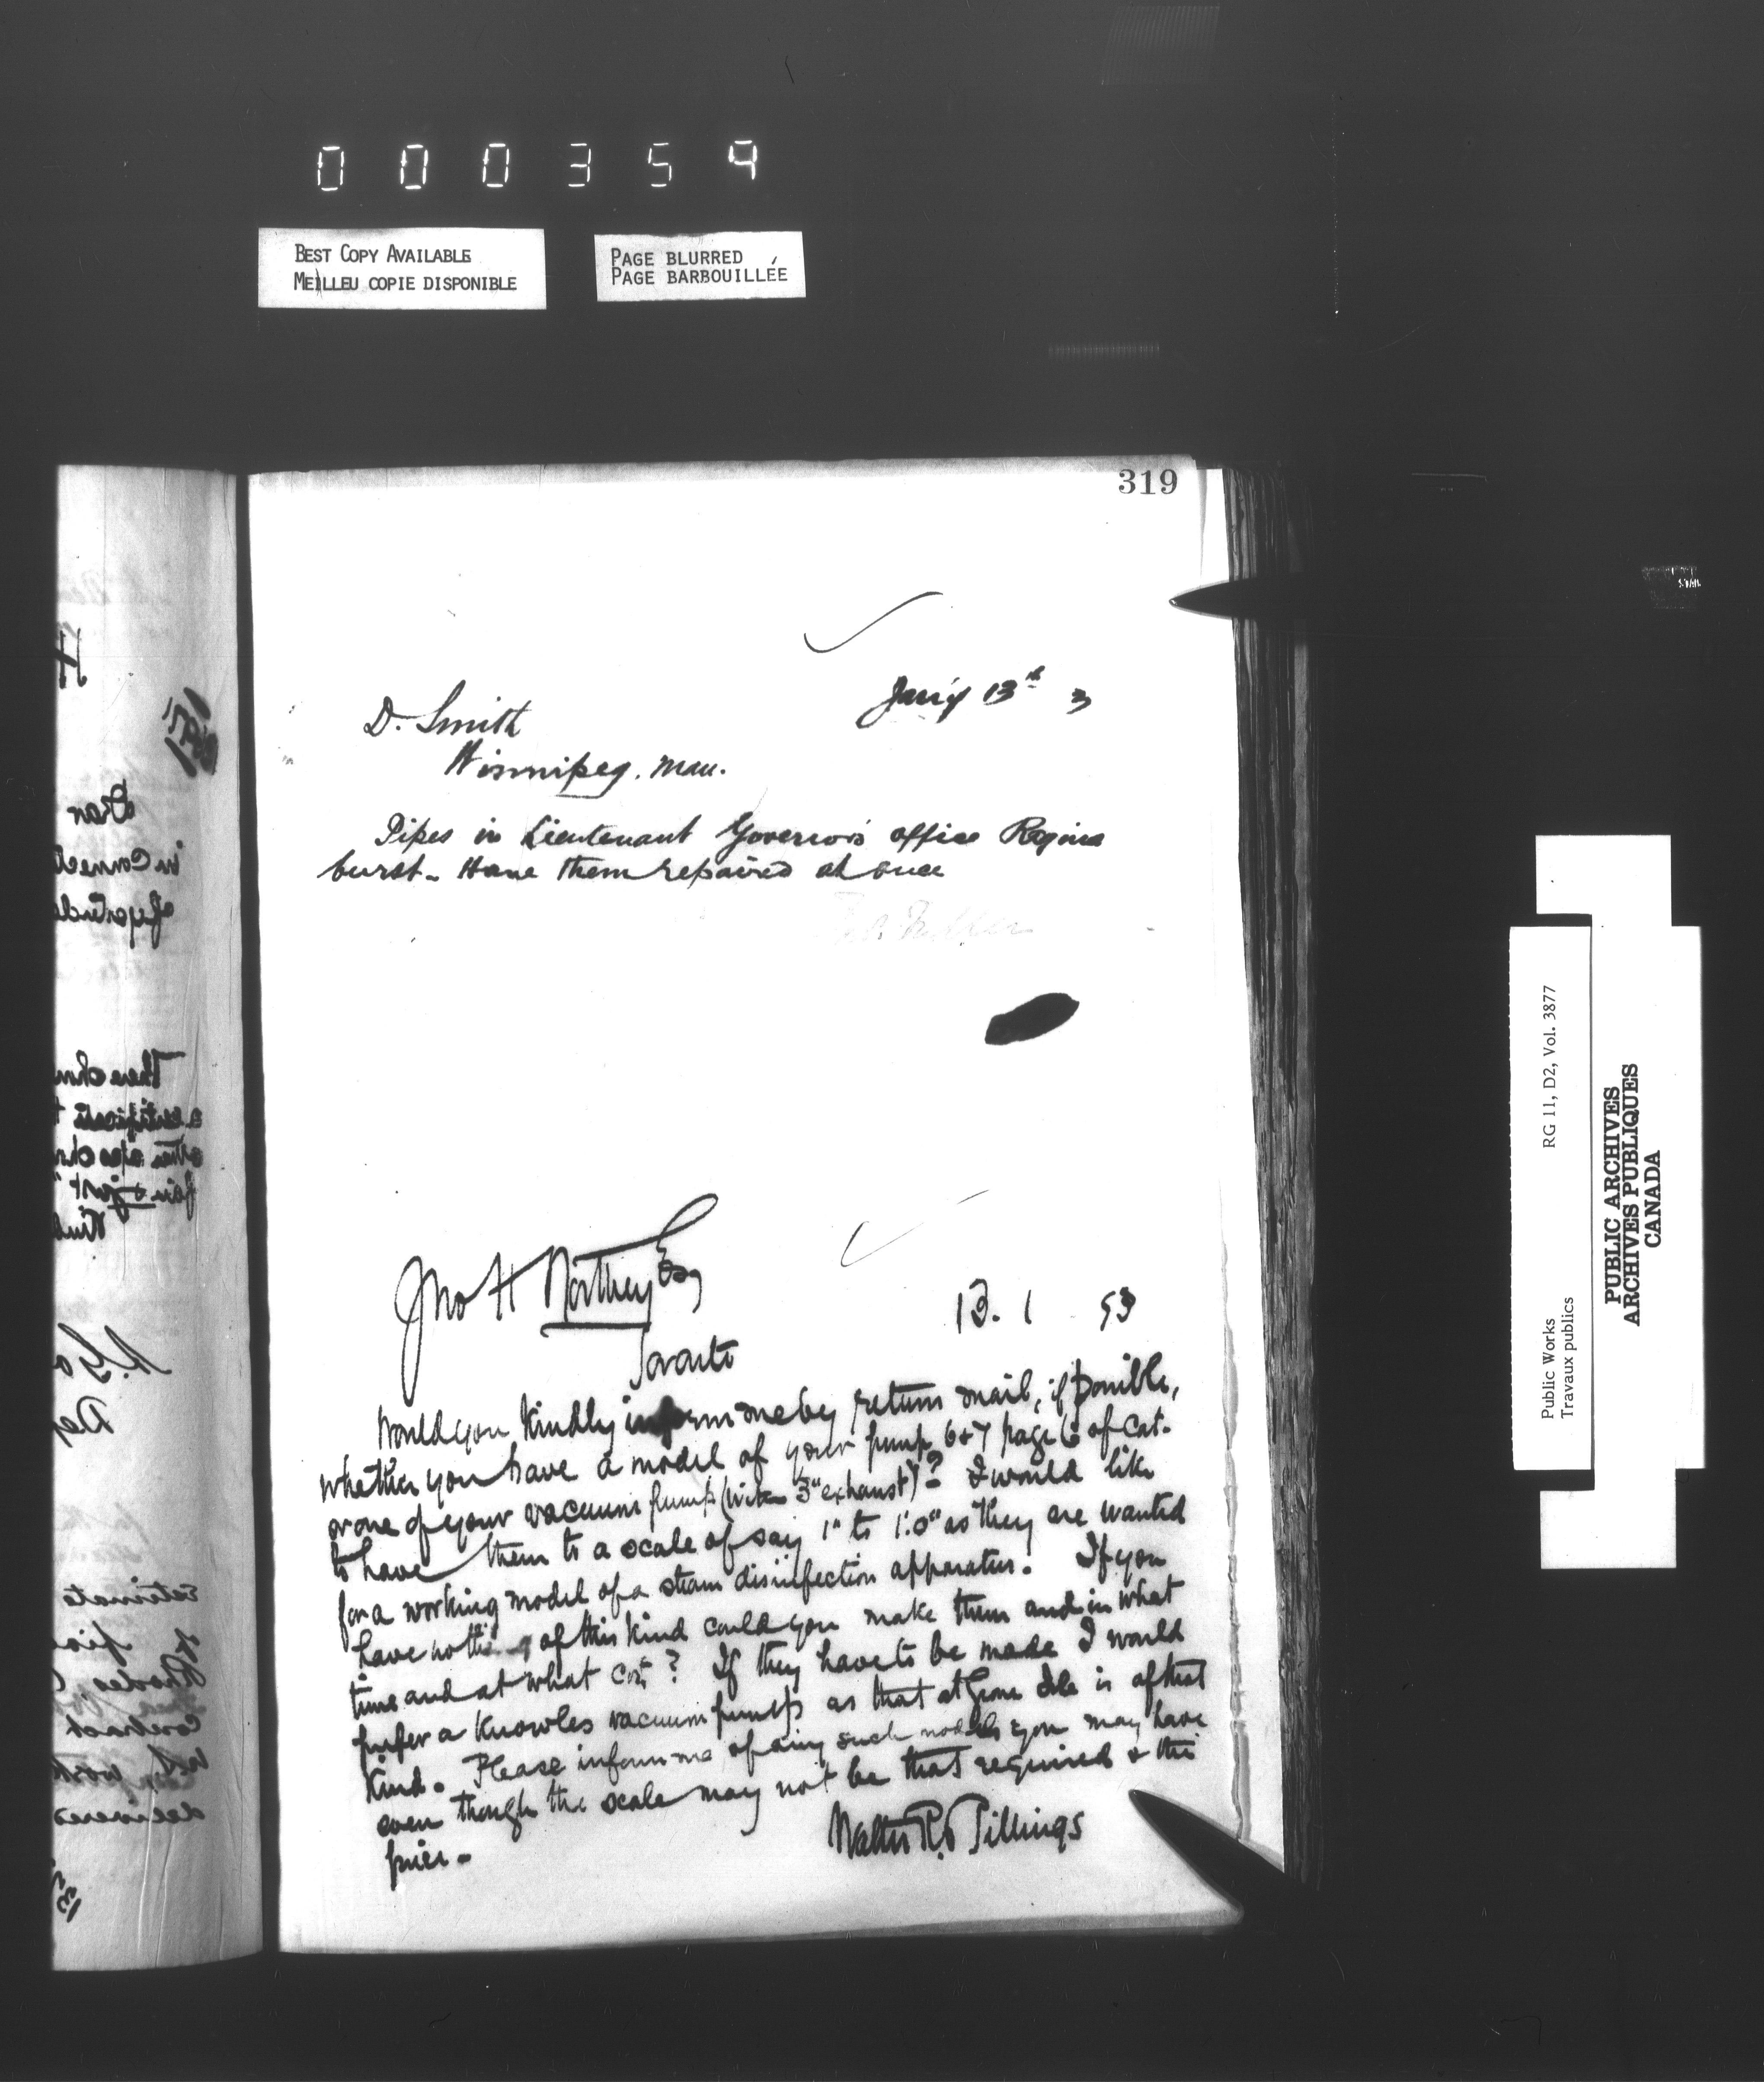 000354
BEST COPY AVAILABLE
MEILLEU COPIE DISPONIBLE
PAGE BLURRED
PAGE BARBOUILLÉE
319
Jan'y 13th 3
D. Smith
Winnipeg. Man.
Pipes in Lieutenant Governor's office Regina
burst. Have them repaired at once
Jno H Northey Esq
Toronto
13. 1 93
Would you kindly inform me by return mail, if possible,
whether you have a model of your pump 6 & 7 page 6 of Cat.
or one of your vacuum pumps (with 3" exhaust)? I would like
to have them to a scale of say 1" to 1'.0" as they are wanted
for a working model of a steam disinfection apparatus. If you
have nothing of this kind could you make them and in what
time and at what cost? If they have to be made I would
prefer a Knowles vacuum pump as that at Grosse Isle is of that
kind. Please inform me of any such models you may have
even though the scale may not be that required & the
price.
Walter R. Billings
Dear
in connect
of yesterda
There
a certificate
often also
fair & just
Kind
Dep
Estimate
Rhodes
Contract
work
delivered
RG 11, D2, Vol. 3877
Public Works
Travaux publics
PUBLIC ARCHIVES
ARCHIVES PUBLIQUES
CANADA